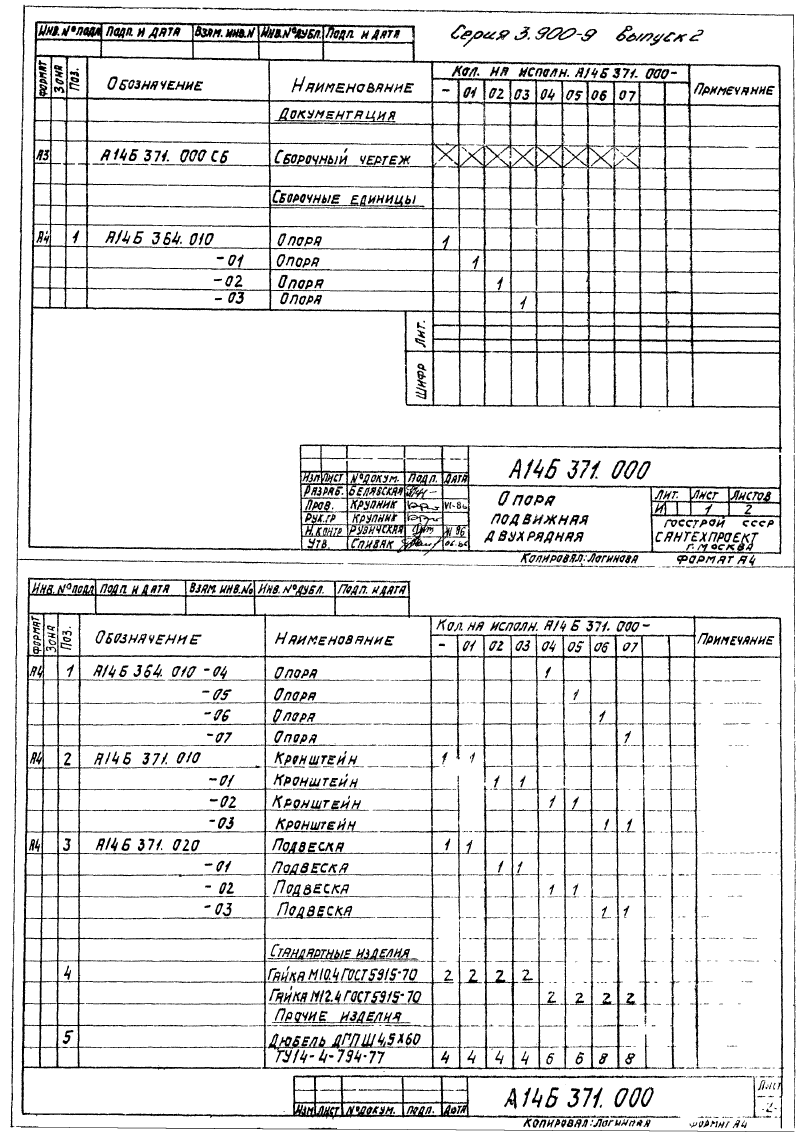 Серия 3.900-9 Выпуск 2
Инв. № подл Подп. и дата Взам. инв. N Инв. № дубл. Подп. и дата
Формат Зона Поз. Обозначение Наименование Кол. на исполн. А14Б 371.000- Примечание
- 01 02 03 04 05 06 07
Документация
А3 А14Б 371.000 СБ Сборочный чертеж
Сборочные единицы
А4 1 А14Б 364.010 Опора 1
-01 Опора 1
-02 Опора 1
-03 Опора 1
Лит.
Шифр
Изм Лист № докум. Подп. Дата
А14Б 371.000
Разраб. Белявская
Пров. Крупник VI-86
Рук.гр Крупник
Н.контр Рузическая
Утв. Спивак
Опора
подвижная
двухрядная
Лит. Лист Листов
И 1 2
Госстрой СССР
Сантехпроект
г. Москва
Копировал: Логинова Формат А4
Инв. № подл Подп. и дата Взам. инв. № Инв. № дубл. Подп. и дата
Формат Зона Поз. Обозначение Наименование Кол. на исполн. А14Б 371.000- Примечание
- 01 02 03 04 05 06 07
А4 1 А14Б 364.010 -04 Опора 1
-05 Опора 1
-06 Опора 1
-07 Опора 1
А4 2 А14Б 371.010 Кронштейн 1 1
-01 Кронштейн 1 1
-02 Кронштейн 1 1
-03 Кронштейн 1 1
А4 3 А14Б 371.020 Подвеска 1 1
-01 Подвеска 1 1
-02 Подвеска 1 1
-03 Подвеска 1 1
Стандартные изделия
4 Гайка М10.4 ГОСТ 5915-70 2 2 2 2
Гайка М12.4 ГОСТ 5915-70 2 2 2 2
Прочие изделия
5 Дюбель ДГПШ 4,5х60
ТУ14-4-794-77 4 4 4 4 6 6 8 8
Изм Лист № докум. Подп. Дата
А14Б 371.000
Лист
2
Копировал: Логинова Формат А4